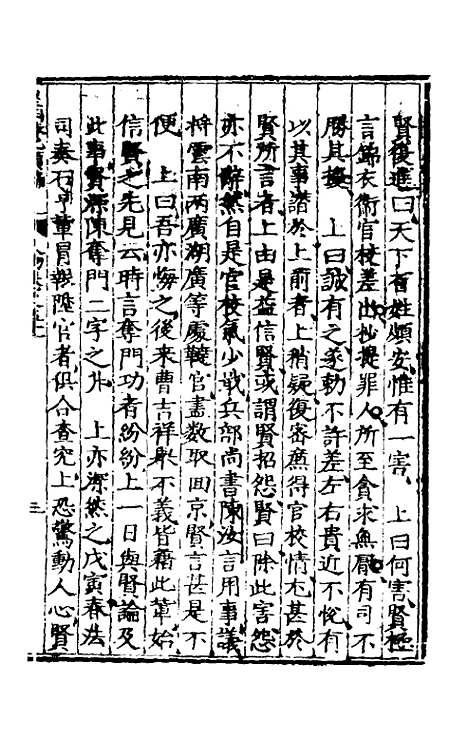 賢復進曰天下百姓頗安惟有一害　上曰何害賢極
言錦衣衛官校差出抄提罪人所至貪求無厭有司不
勝其擾　上曰誠有之遂勅不許差左右貴近不悅有
以其事譖於上前者上稍疑復密廉得官校情尤甚於
賢所言者上由是益信賢或謂賢招怨賢曰除此害怨
亦不辭然自是官校氣少戢兵部尚書陳汝言用事議
將雲南兩廣湖廣等處韃官盡數取回京賢言甚是不
便　上曰吾亦悔之後來曹吉祥果不義皆藉此輩始
信賢之先見云時言奪門功者紛紛上一日與賢論及
此事賢深陳奪門二字之非　上亦深然之戊寅春法
司奏石亨輩冒報陞官者俱合查究上恐驚動人心賢
三